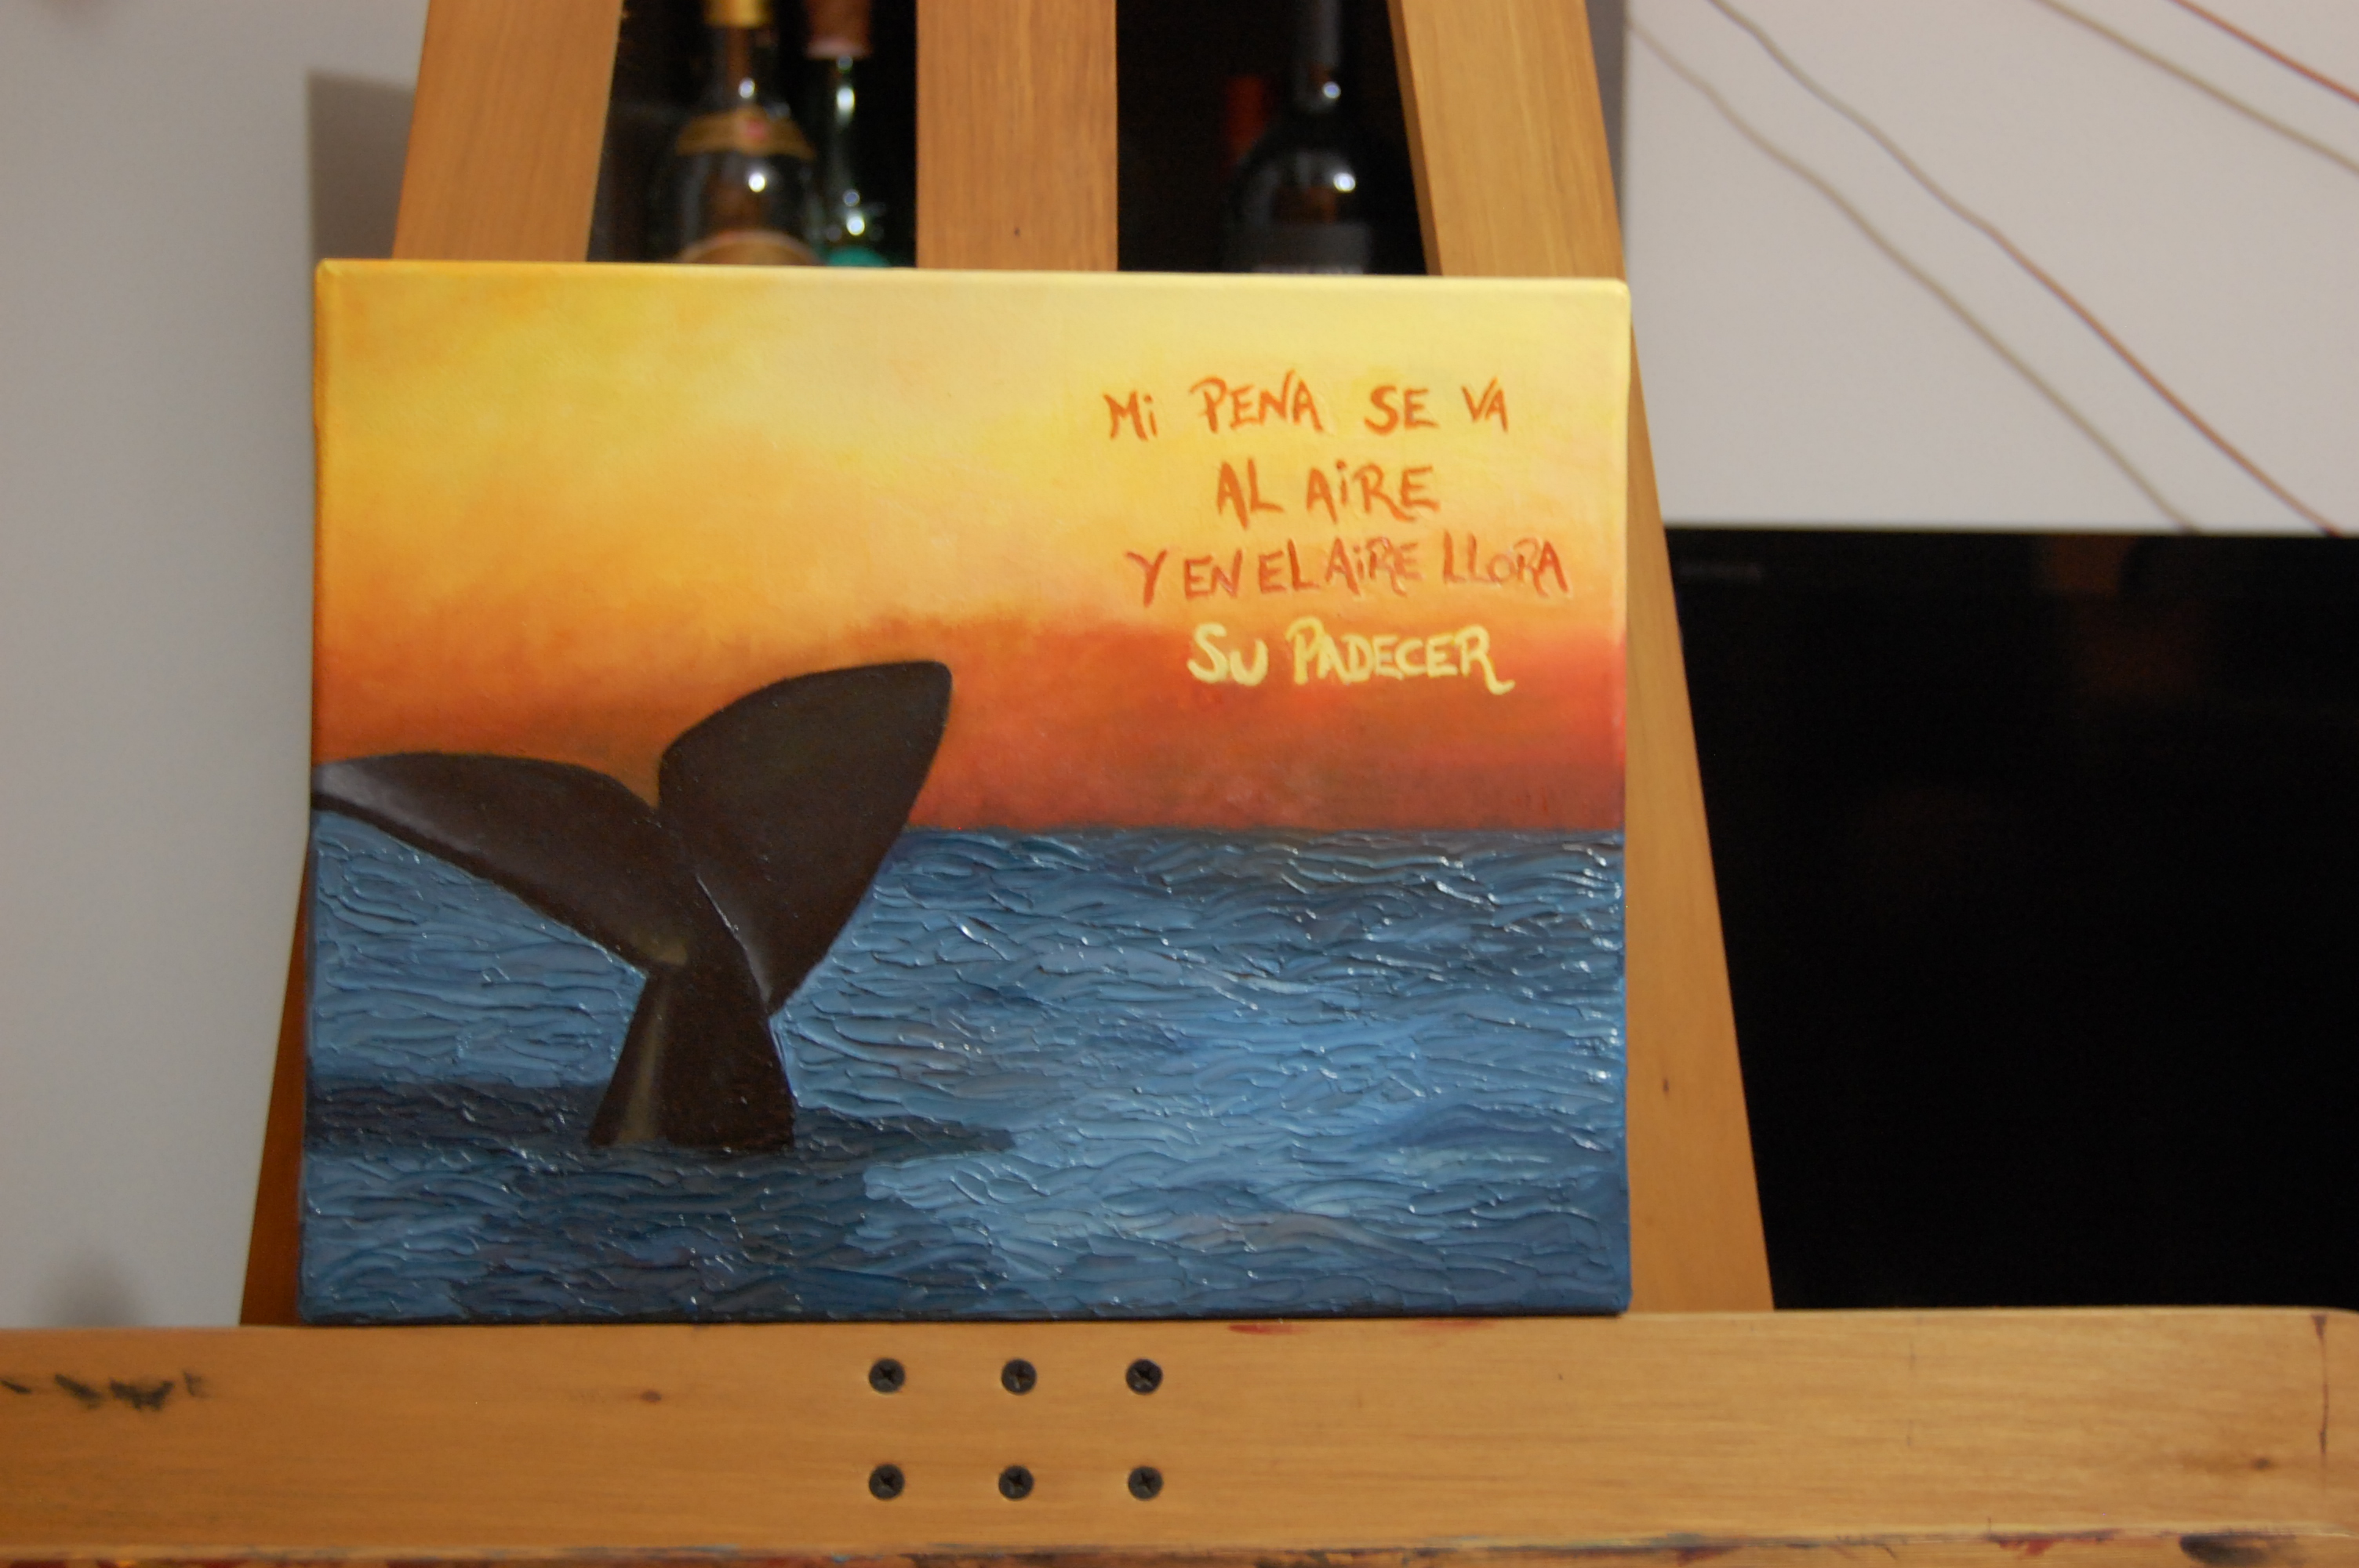 Mi PENA SE VA
AL AiRE
Y EN EL AiRE LLORA
SU PADECER